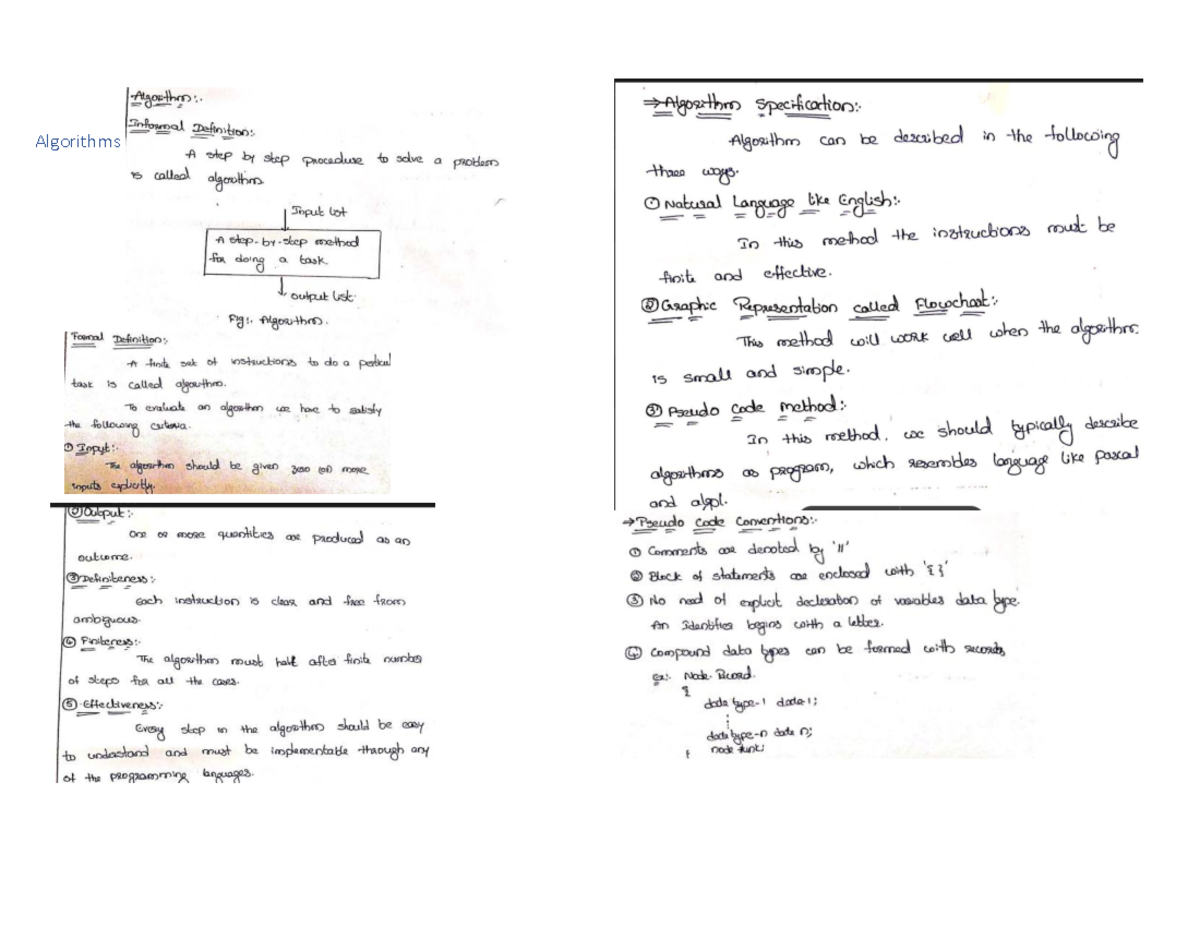 Algorithms
Algorithm:.
Informal Definition:.
A step by step procedure to solve a problem
is called algorithm.
Input list
A step-by-step method
for doing a task.
output list.
Fig:. Algorithm.
Formal Definition:.
A finite set of instructions to do a
task is called algorithm.
To evaluate an algorithm we have to satisfy
the following criteria.
① Input:.
The algorithm should be given zero (or) more
inputs explicitly.
② Output:.
One or more quantities are produced as an
outcome.
③ Definiteness:.
Each instruction is clear and free from
ambiguous.
④ Finiteness:.
The algorithm must halt after finite number
of steps for all the cases.
⑤ Effectiveness:.
Every step in the algorithm should be easy
to understand and must be implementable through any
of the programming languages.
⇒Algorithm Specification:.
Algorithm can be described in the following
three ways.
① Natural Language like English:.
In this method the instructions must be
finite and effective.
② Graphic Representation called Flowchart:.
This method will work well when the algorithm
is small and simple.
③ Pseudo code method:.
In this method, we should typically describe
algorithms as program, which resembles language like pascal
and algol.
→Pseudo Code Conventions:.
① Comments are denoted by '//'
② Block of statements are enclosed with '{ }'
③ No need of explicit decleration of variables data type.
An Identifier begins with a letter.
④ Compound data types can be formed with records
Ex:. Node. Record.
{
data type-1 data-1;
data type-n data n;
}